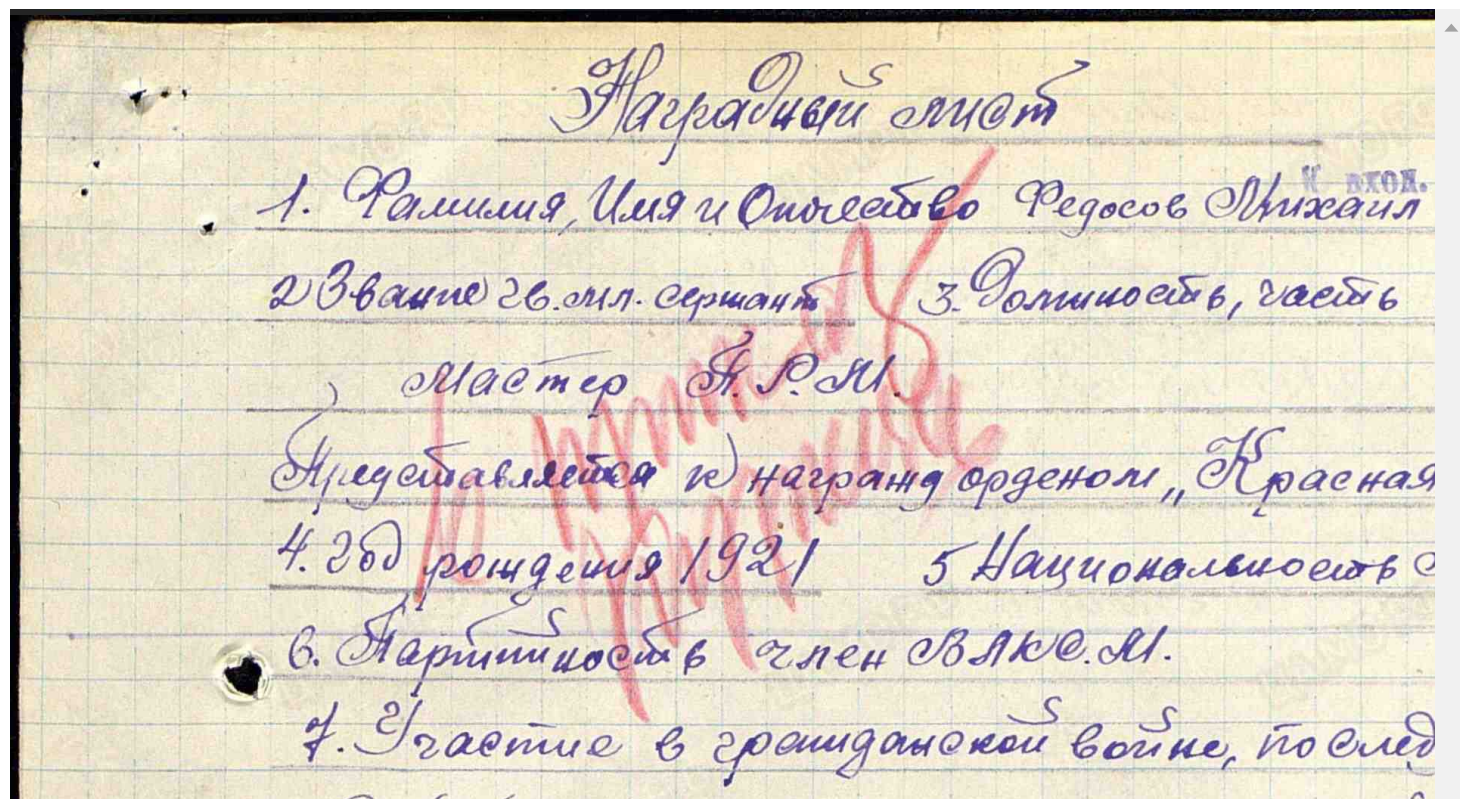 Наградный лист
К вход.
1. Фамилия, Имя и Отчество Федосов Михаил
2 Звание гв. мл. сержант 3. Должность, часть
Мастер А.Р.М.
Представляется к награжд орденом „Красная
4. Год рождения 1921 5 Национальность
6. Партийность член ВЛКС.М.
7. Участие в гражданской войне, послед